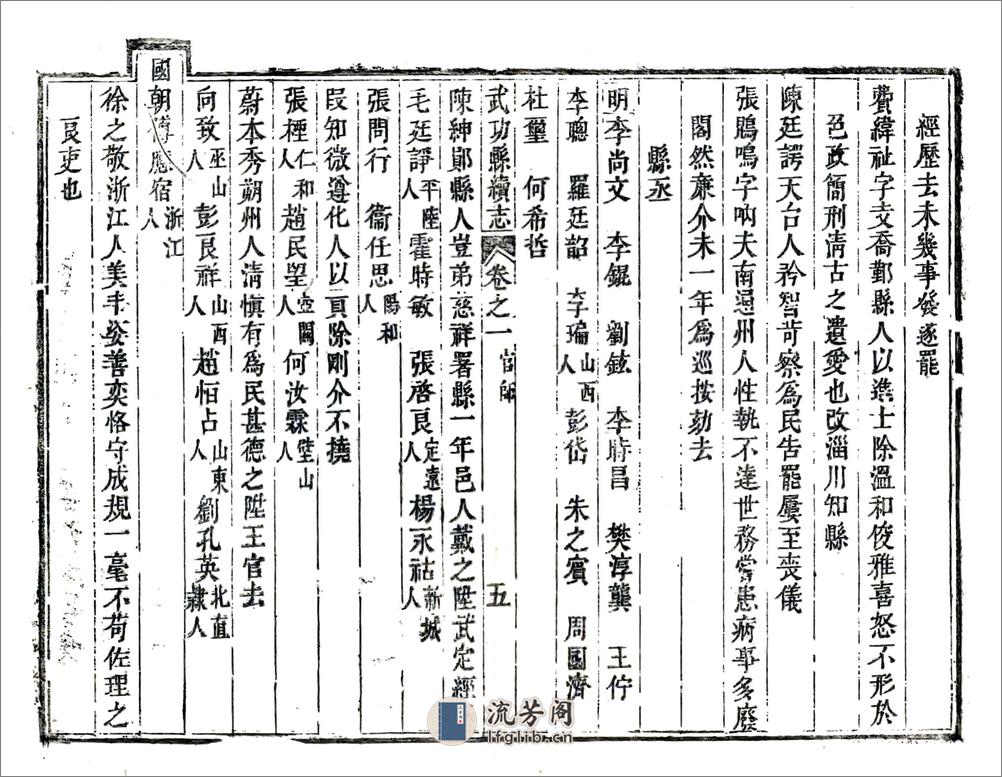 經歷去未幾事發逐罷
費緯祉字文喬鄞縣人以進士除溫和俊雅喜怒不形於
邑政簡刑淸古之遺愛也改淄川知縣
陳廷諤天台人矜智苛察爲民吿罷屢至喪儀
張鵬鳴字吶夫南通州人性執不達世務嘗患病事多廢
閣然亷介未一年爲巡按劾去
縣丞
明李尚文 李錕 劉鉉 李時昌 樊淳龔 王佇
李聰 羅廷詔 李瑜山西人 彭岱 朱之賓 周國濟
杜璽 何希哲
武功縣續志 卷之一 官師 五
陳紳鄖縣人豈弟慈祥署縣一年邑人戴之陞武定經
毛廷諍平陸人 霍時敏 張啓良定遠人 楊永祜新城人
張問行 衞任思陽和人
段知微遵化人以貢除剛介不撓
張極仁和人 趙民望壺關人 何汝霖壁山人
蔚本秀朔州人淸愼有爲民甚德之陞王官去
向致巫山人 彭良祥山西人 趙恒占山東人 劉孔英北直隸人
國朝傅應宿浙江人
徐之敬浙江人美丰姿善奕恪守成規一毫不苟佐理之
良吏也
流芳阁
lfglib.cn